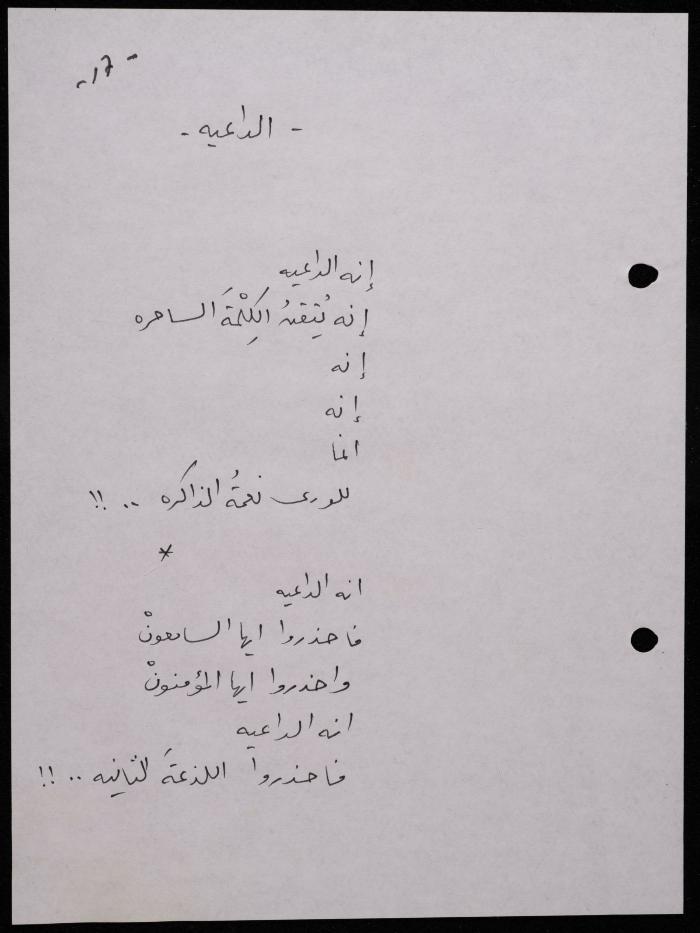 -١٦-
- الداعيه -
إنه الداعيه
إنه يُتقنُ الكِلْمَةَ الساحره
إنه
إنه
انما
للورى نعمةُ الذاكره .. !!
*
انه الداعيه
فاحذروا ايها السامعونْ
واحذروا ايها المؤمنونْ
انه الداعيه
فاحذروا اللذعةَ الثانيه .. !!